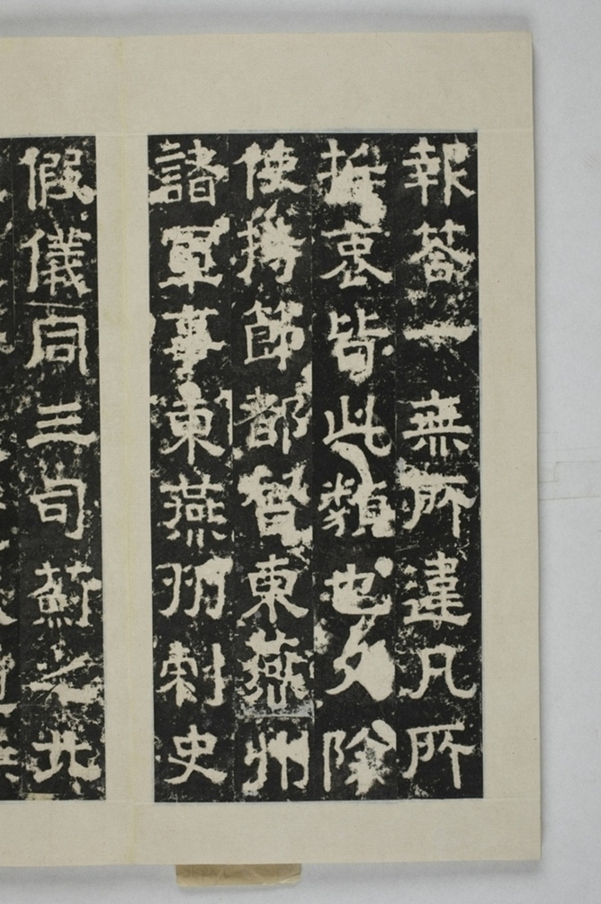 報荅一無所違凡所
衷皆此類也又除
使持節都督東燕州
諸軍事東燕州刺史
假儀同三司薊之北